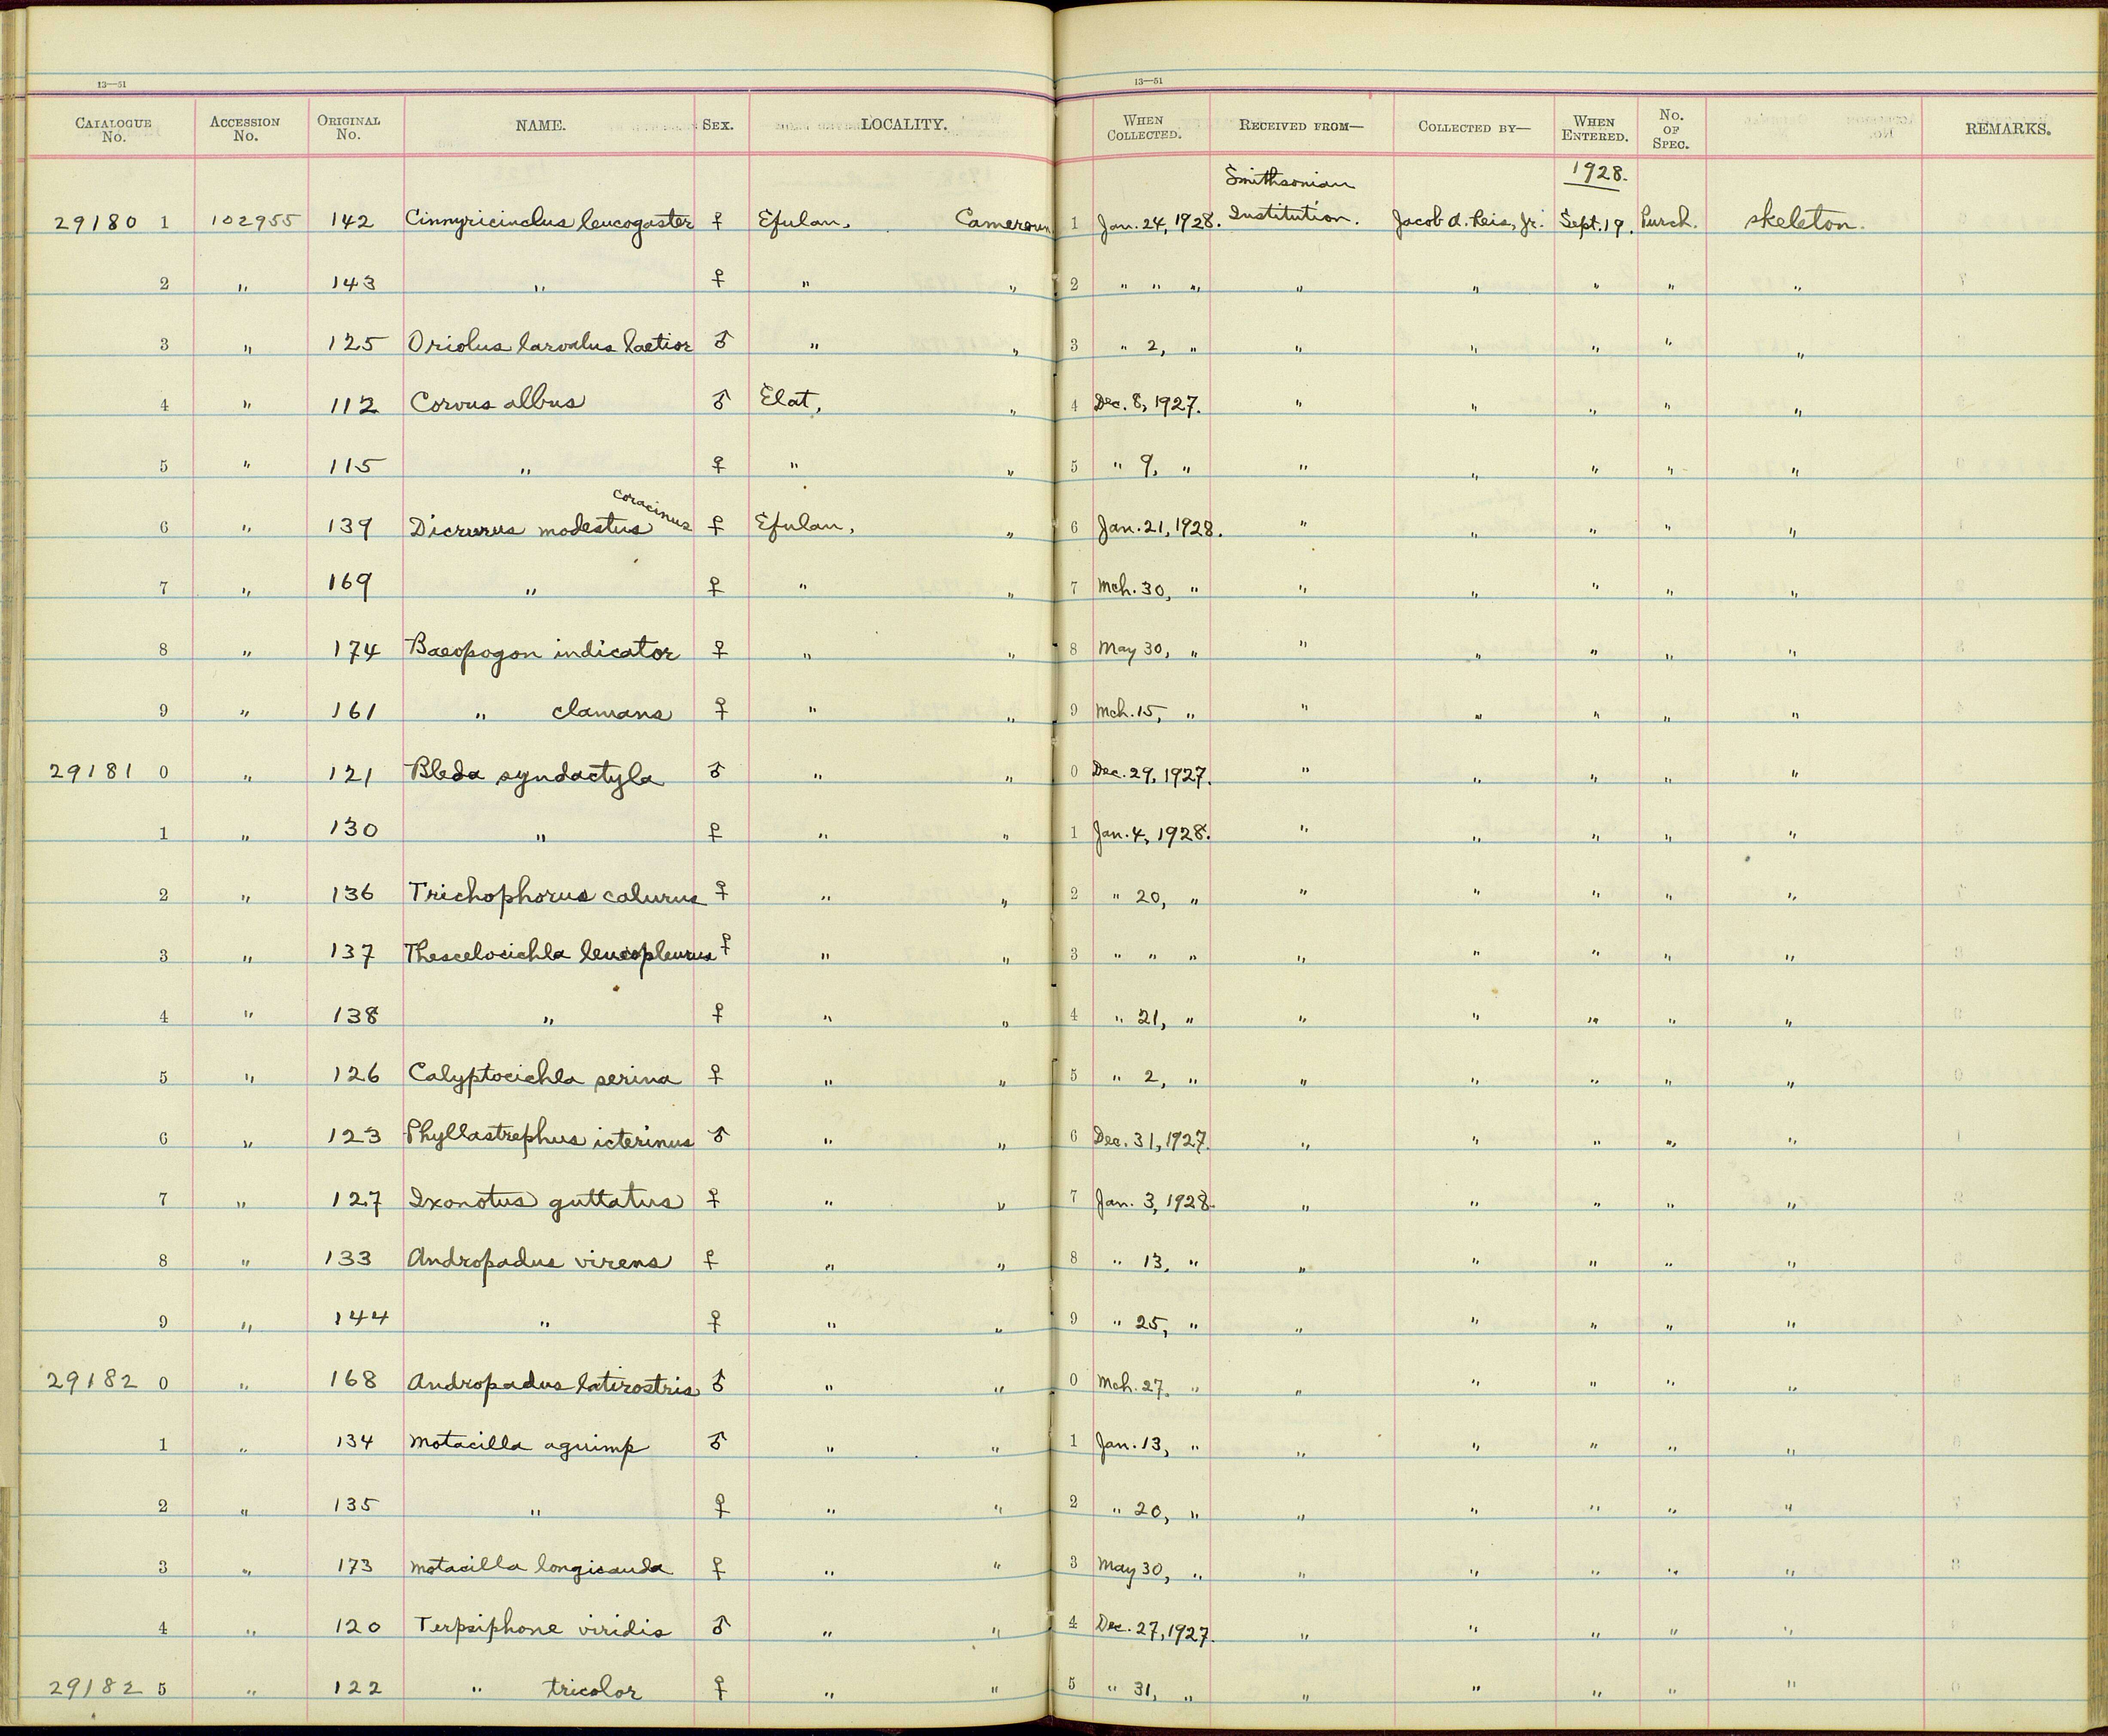 13—51 13—51
CATALOGUE No. ACCESSION No. ORIGINAL No. NAME. SEX. LOCALITY. WHEN COLLECTED. RECEIVED FROM— COLLECTED BY— WHEN ENTERED. No. OF SPEC. REMARKS.
Smithsonian 1928.
29180 1 102955 142 Cinnyricinclus leucogaster ♀ Efulan, Cameroun 1 Jan. 24, 1928. Institution. Jacob A. Reis, Jr. Sept. 19. Purch. skeleton.
2 " 143 " ♀ " " 2 " " " " " " " "
3 " 125 Oriolus larvatus laetior ♂ " " 3 " 2, " " " " " "
4 " 112 Corvus albus ♂ Elat, " 4 Dec. 8, 1927. " " " " "
5 " 115 " ♀ " " 5 " 9, " " " " " "
coracinus
6 " 139 Dicrurus modestus ♀ Efulan, " 6 Jan. 21, 1928. " " " " "
7 " 169 " ♀ " " 7 Mch. 30, " " " " " "
8 " 174 Baeopogon indicator ♀ " " 8 May 30, " " " " " "
9 " 161 " clamans ♀ " " 9 Mch. 15, " " " " " "
29181 0 " 121 Bleda syndactyla ♂ " " 0 Dec. 29, 1927. " " " " "
1 " 130 " ♀ " " 1 Jan. 4, 1928. " " " " "
2 " 136 Trichophorus calurus ♀ " " 2 " 20, " " " " " "
3 " 137 Thescelocichla leucopleurus ♀ " " 3 " " " " " " " "
4 " 138 " ♀ " " 4 " 21, " " " " " "
5 " 126 Calyptocichla serina ♀ " " 5 " 2, " " " " " "
6 " 123 Phyllastrephus icterinus ♂ " " 6 Dec. 31, 1927. " " " " "
7 " 127 Ixonotus guttatus ♀ " " 7 Jan. 3, 1928. " " " " "
8 " 133 Andropadus virens ♀ " " 8 " 13, " " " " " "
9 " 144 " ♀ " " 9 " 25, " " " " " "
29182 0 " 168 Andropadus latirostris ♂ " " 0 Mch. 27. " " " " " "
1 " 134 Motacilla aguimp ♂ " " 1 Jan. 13, " " " " " "
2 " 135 " ♀ " " 2 " 20, " " " " " "
3 " 173 Motacilla longicauda ♀ " " 3 May 30, " " " " " "
4 " 120 Terpsiphone viridis ♂ " " 4 Dec. 27, 1927. " " " " "
29182 5 " 122 " tricolor ♀ " " 5 " 31, " " " " " "